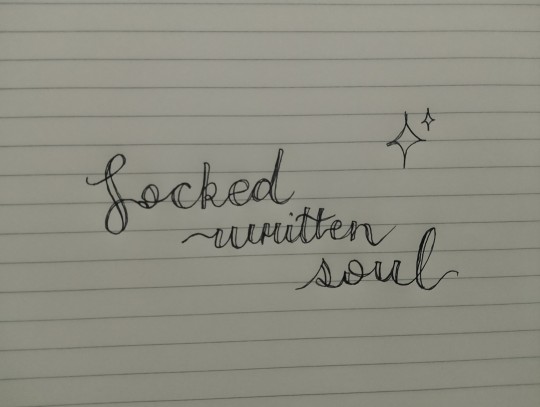 Locked
written
soul